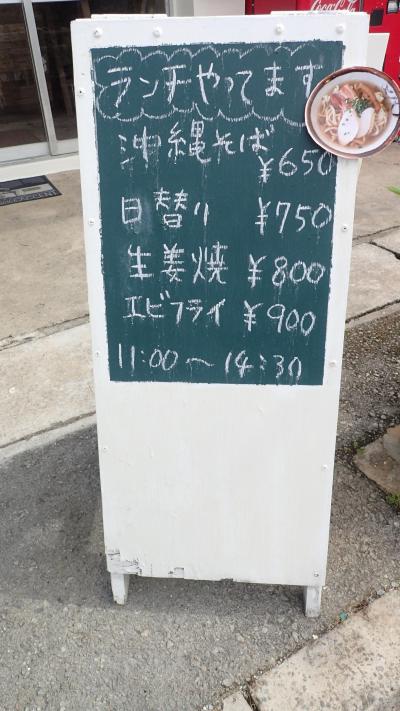 Coca-Cola
ランチやってます
沖縄そば
¥650
日替り ¥750
生姜焼 ¥800
エビフライ ¥900
11:00～14:30